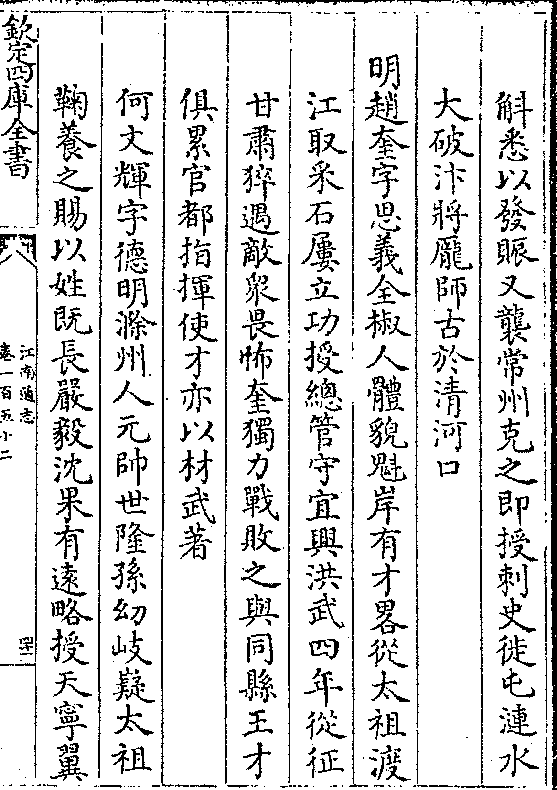 斛悉以發賑又襲常州克之即授刺史徙屯漣水
大破汴將龎師古於清河口
明趙奎字思義全椒人體貌魁岸有才畧從太祖渡
江取采石屢立功授總管守宜興洪武四年從征
甘肅猝遇敵衆畏怖奎獨力戰敗之與同縣王才
俱累官都指揮使才亦以材武著
何文輝字德明滁州人元帥世隆孫幼岐嶷太祖
鞠養之賜以姓既長嚴毅沈果有逺略授天寧翼
欽定四庫全書
江南通志
卷一百五十二